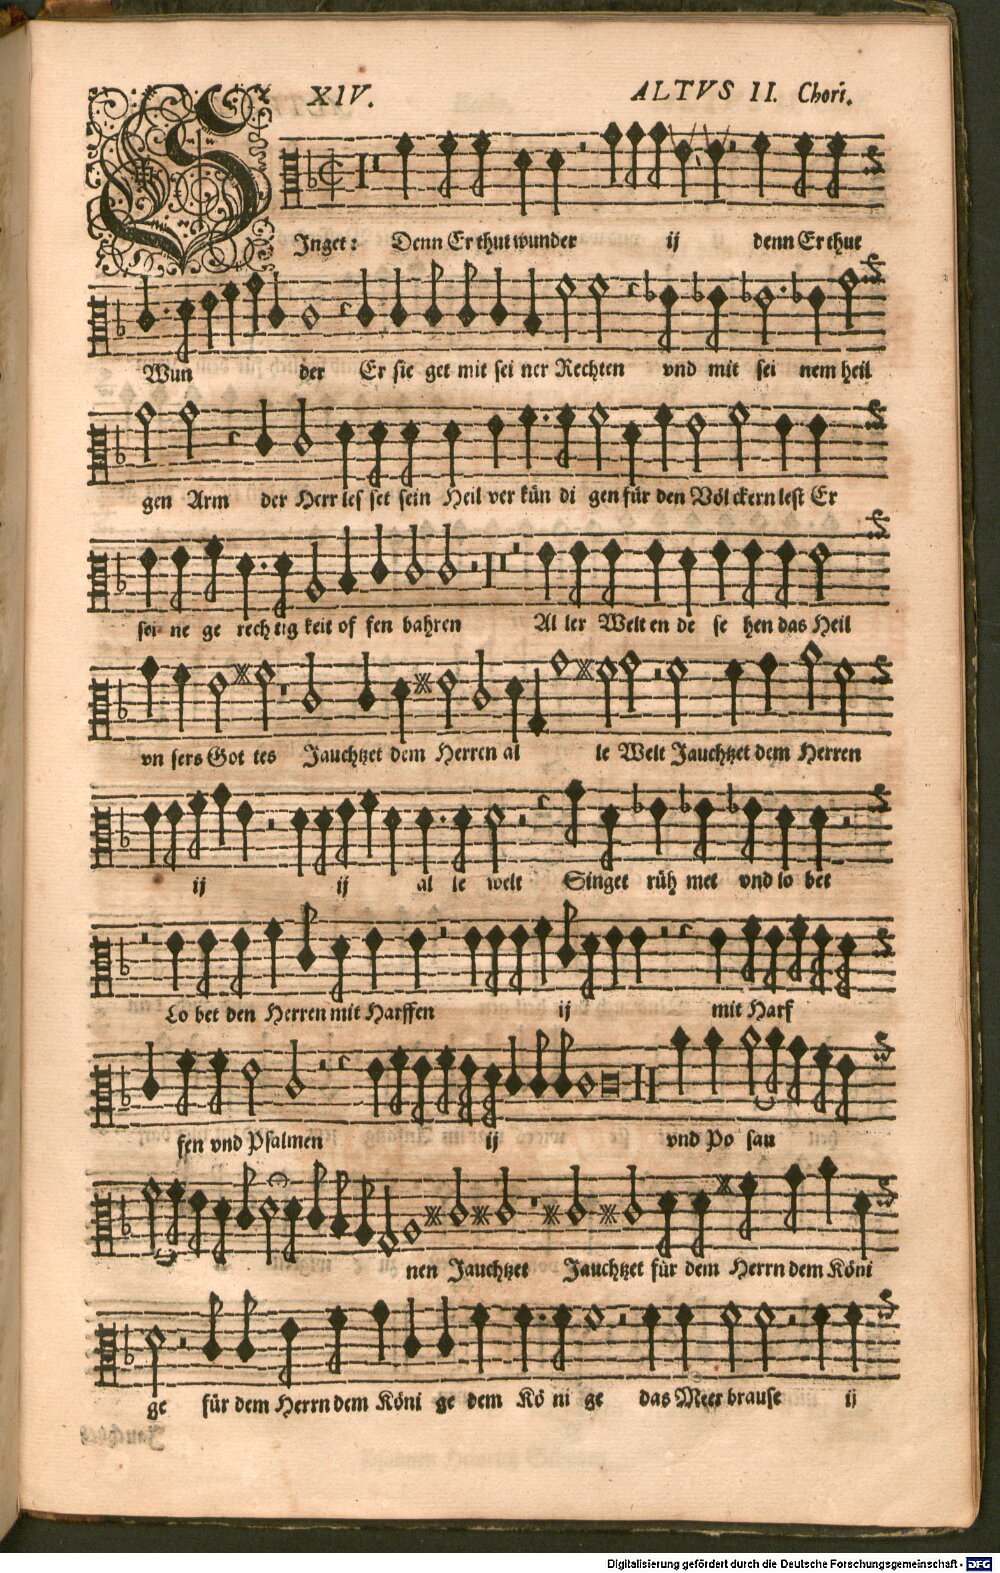 XIV. ALTVS II. Chori.
SInget: Denn Er thut wunder ij denn Er thut
Wun der Er sie get mit sei ner Rechten vnd mit sei nem heil
gen Arm der Herr les set sein Heil ver kün di gen für den Völ ckern lest Er
sei ne ge rech tig keit of fen bahren Al ler Welt en de se hen das Heil
vn sers Got tes Jauchtzet dem Herren al le Welt Jauchtzet dem Herren
ij ij al le welt Singet rüh met vnd lo bet
Lo bet den Herren mit Harffen ij mit Harf
fen vnd Psalmen ij vnd Po sau
nen Jauchtzet Jauchtzet für dem Herrn dem Köni
ge für dem Herrn dem Köni ge dem Kö ni ge das Meer brause ij
Digitalisierung gefördert durch die Deutsche Forschungsgemeinschaft - DFG